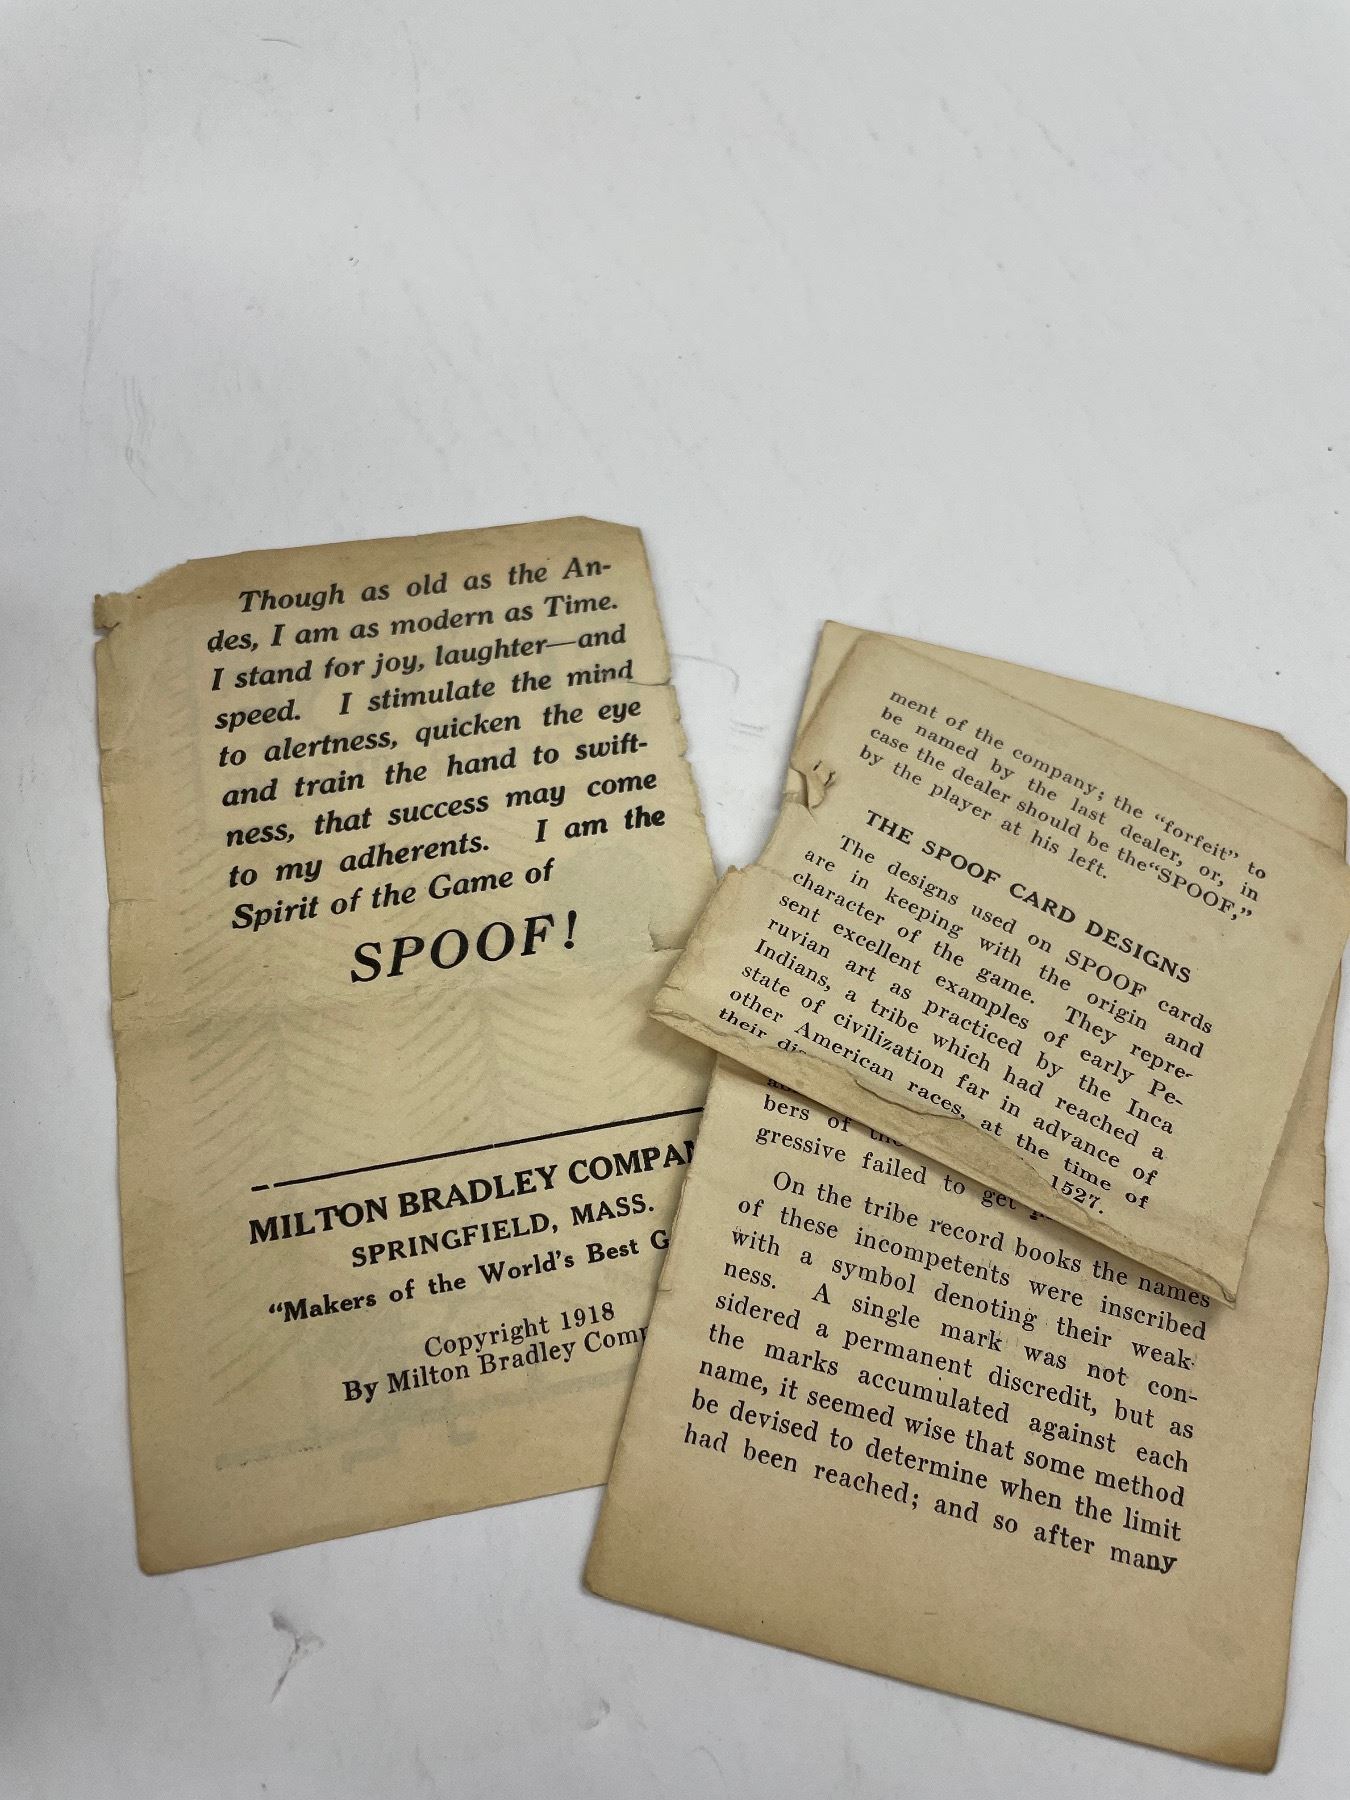 Though as old as the An-
des, I am as modern as Time.
I stand for joy, laughter—and
speed. I stimulate the mind
to alertness, quicken the eye
and train the hand to swift-
ness, that success may come
to my adherents. I am the
Spirit of the Game of
SPOOF!
MILTON BRADLEY COMPAN
SPRINGFIELD, MASS.
“Makers of the World's Best G
Copyright 1918
By Milton Bradley Comp
ment of the company; the “forfeit” to
be named by the last dealer, or, in
case the dealer should be the“SPOOF,”
by the player at his left.
THE SPOOF CARD DESIGNS
The designs used on SPOOF cards
are in keeping with the origin and
character of the game. They repre-
sent excellent examples of early Pe-
ruvian art as practiced by the Inca
Indians, a tribe which had reached a
state of civilization far in advance of
other American races, at the time of
their 1527.
bers of the
gressive failed to get
On the tribe record books the names
of these incompetents were inscribed
with a symbol denoting their weak-
ness. A single mark was not con-
sidered a permanent discredit, but as
the marks accumulated against each
name, it seemed wise that some method
be devised to determine when the limit
had been reached; and so after many